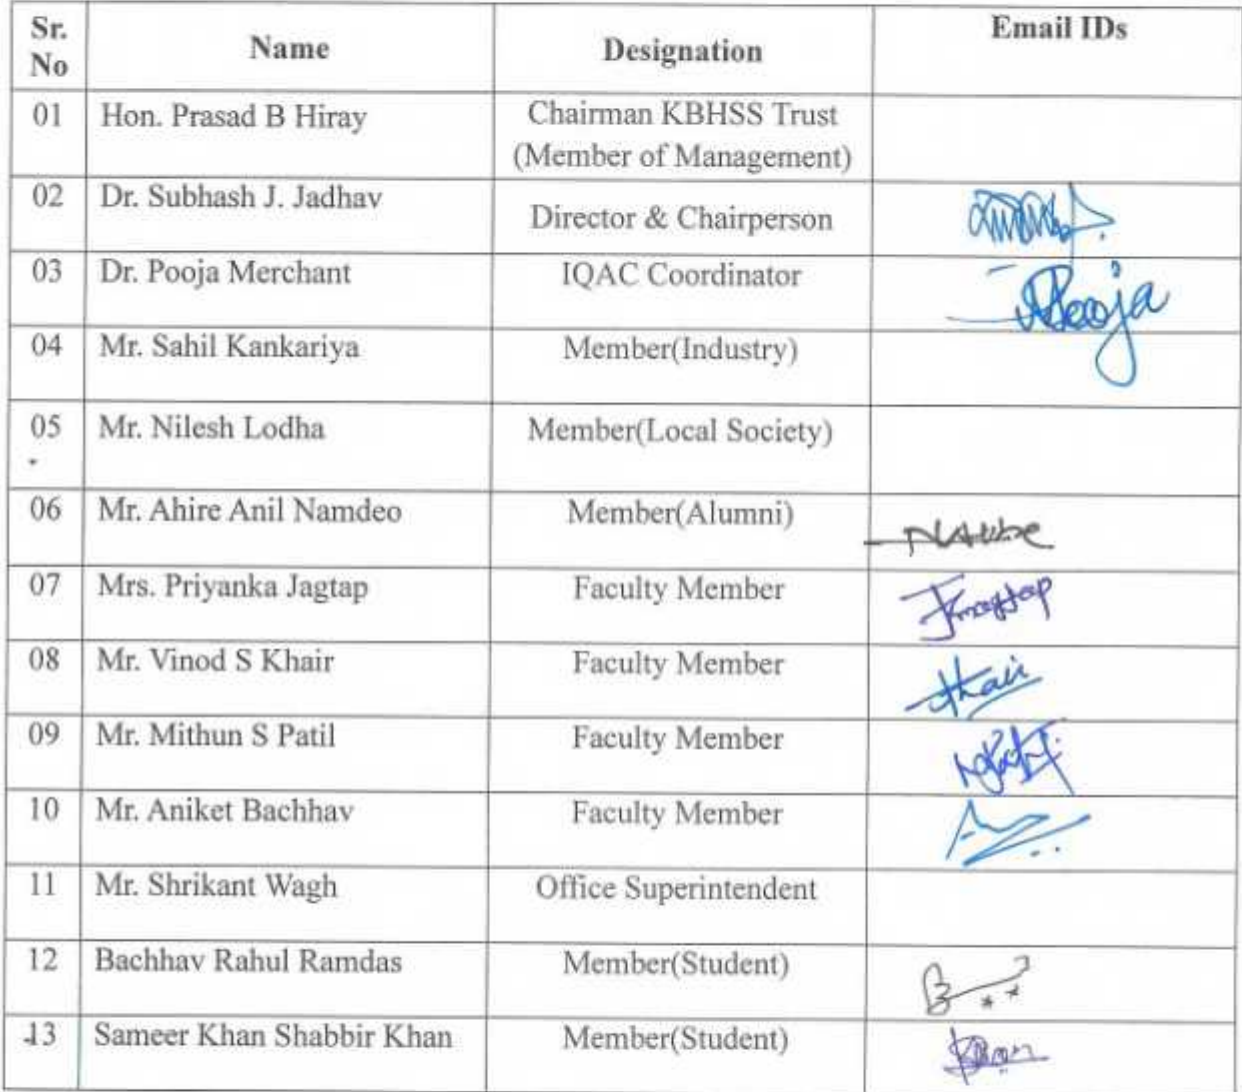 Sr. No Name Designation Email IDs
01 Hon. Prasad B Hiray Chairman KBHSS Trust
(Member of Management)
02 Dr. Subhash J. Jadhav Director & Chairperson
03 Dr. Pooja Merchant IQAC Coordinator Pooja
04 Mr. Sahil Kankariya Member(Industry)
05 Mr. Nilesh Lodha Member(Local Society)
06 Mr. Ahire Anil Namdeo Member(Alumni)
07 Mrs. Priyanka Jagtap Faculty Member
08 Mr. Vinod S Khair Faculty Member
09 Mr. Mithun S Patil Faculty Member
10 Mr. Aniket Bachhav Faculty Member
11 Mr. Shrikant Wagh Office Superintendent
12 Bachhav Rahul Ramdas Member(Student)
13 Sameer Khan Shabbir Khan Member(Student)